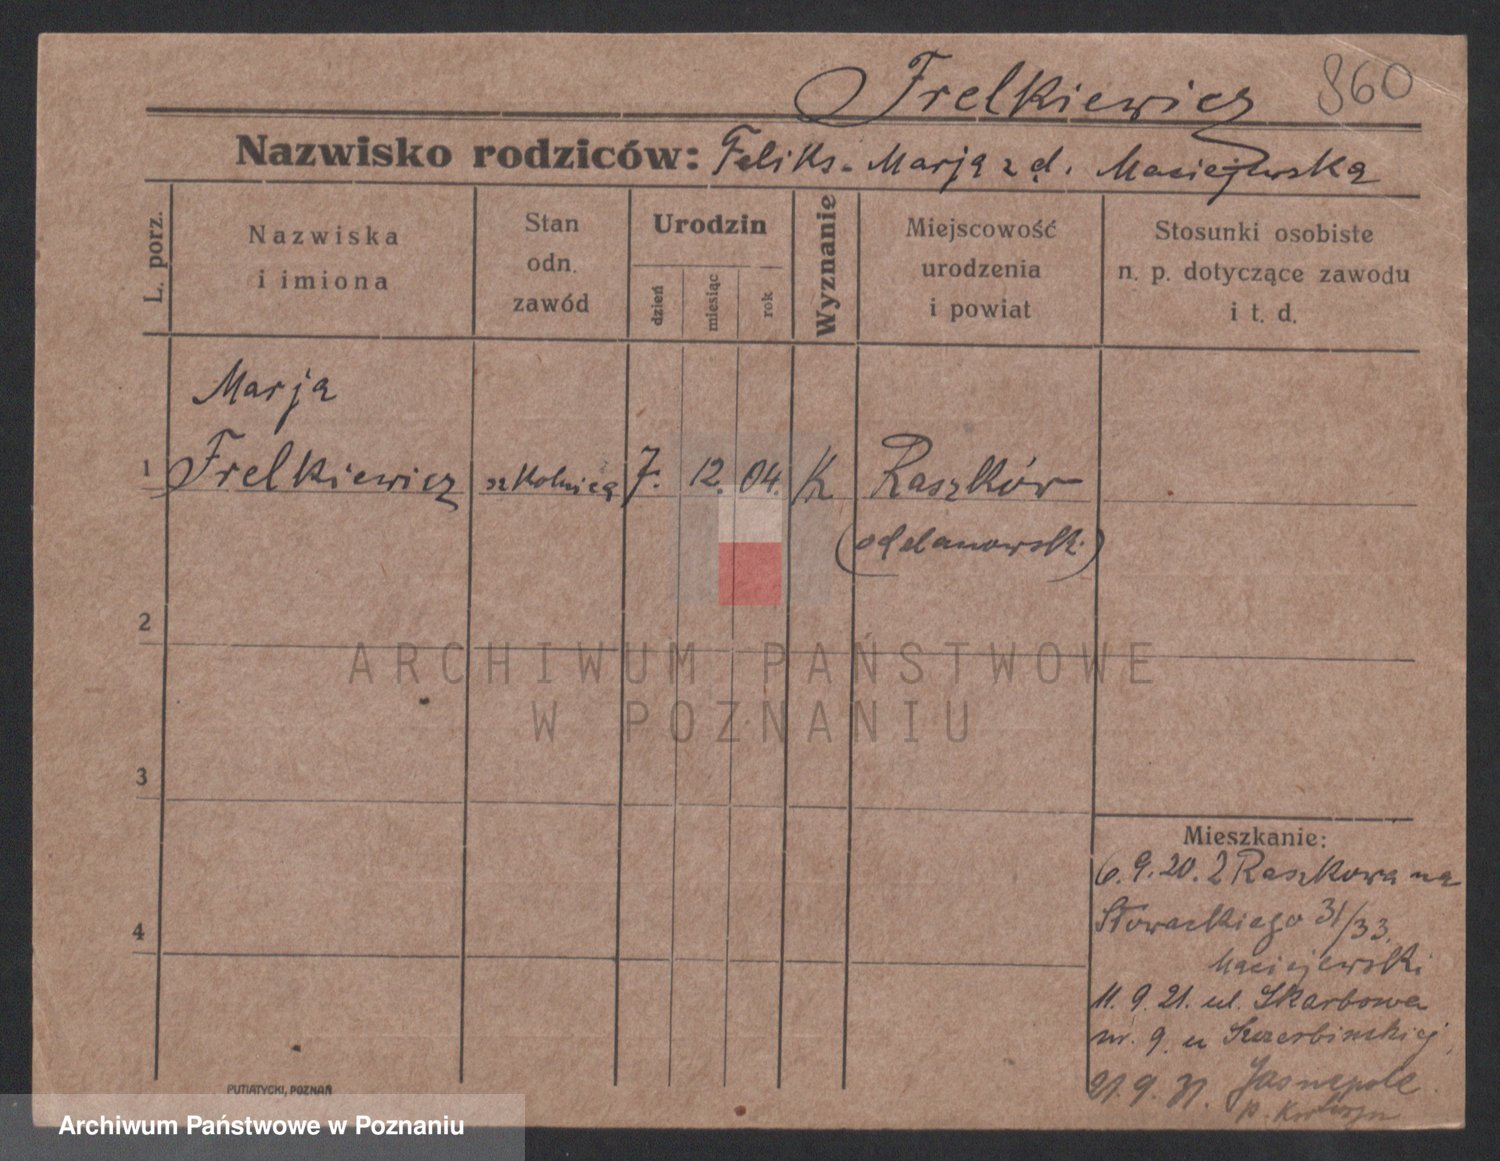 Frelkiewicz 860
Nazwisko rodziców: Feliks - Marja z d. Maciejewska
L. porz.
Nazwiska
i imiona
Stan
odn.
zawód
Urodzin
dzień
miesiąc
rok
Wyznanie
Miejscowość
urodzenia
i powiat
Stosunki osobiste
n. p. dotyczące zawodu
i t. d.
Marja
1 Frelkiewicz szkolnica 7. 12. 04. K Raszków
(odolanowski)
2
ARCHIWUM PAŃSTWOWE
W POZNANIU
3
Mieszkanie:
6. 9. 20. z Raszkowa na
Słowackiego 31/33.
4
Maciejewski
11. 9. 21. ul. Skarbowa
nr. 9. u
21. 9. Jasnepole
p.
PUTIATYCKI, POZNAŃ
Archiwum Państwowe w Poznaniu